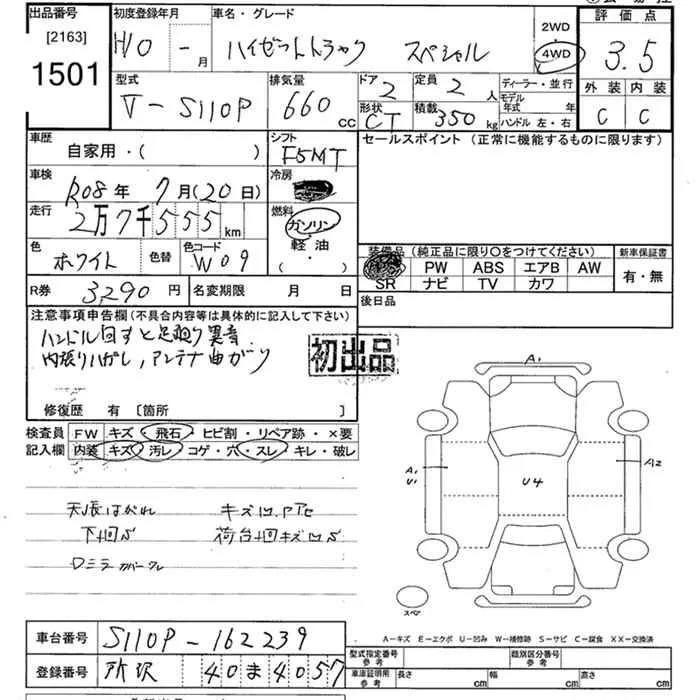 出品番号 初度登録年月 車名・グレード 2WD 評価点
[2163] H10 - 月 ハイゼットトラック スペシャル 4WD 3.5
1501 外装 内装
C C
型式 排気量 ドア 定員 ディーラー・並行
V-S110P 660 cc 2 2 人 モデル年式 年
形状 積載 ハンドル 左・右
CT 350 kg
車歴 シフト セールスポイント (正常に機能するものに限ります)
自家用・( ) F5MT
車検 冷房
R08年 7月(20日)
走行 燃料
2万7千555km ガソリン
軽油
・( )
色 色替 色コード 装備品 (純正品に限り○をつけてください) 新車保証書
ホワイト W09 PW ABS エアB AW 有・無
SR ナビ TV カワ
R券 3290円 名変期限 月 日 後日品
注意事項申告欄(不具合内容等は具体的に記入して下さい)
ハンドル回すと足廻り異音
内張りはがし,アンテナ曲がり
初出品
修復歴 有 [箇所 ]
検査員記入欄 FW キズ・飛石・ヒビ割・リペア跡・×要
内装 キズ・汚レ・コゲ・穴・スレ・キレ・破レ
天張はがれ キズ凹
下廻S 荷台廻キズ凹S
A1
A1
U1
U4
A2
スペア
A-キズ E-エクボ U-凹み W-補修跡 S-サビ C-腐食 XX-交換済
車台番号 S110P-162239
登録番号 所沢 40 ま 4057
型式指定番号 参考 類別区分番号 参考
車庫証明用 参考 長さ cm 幅 cm 高さ cm